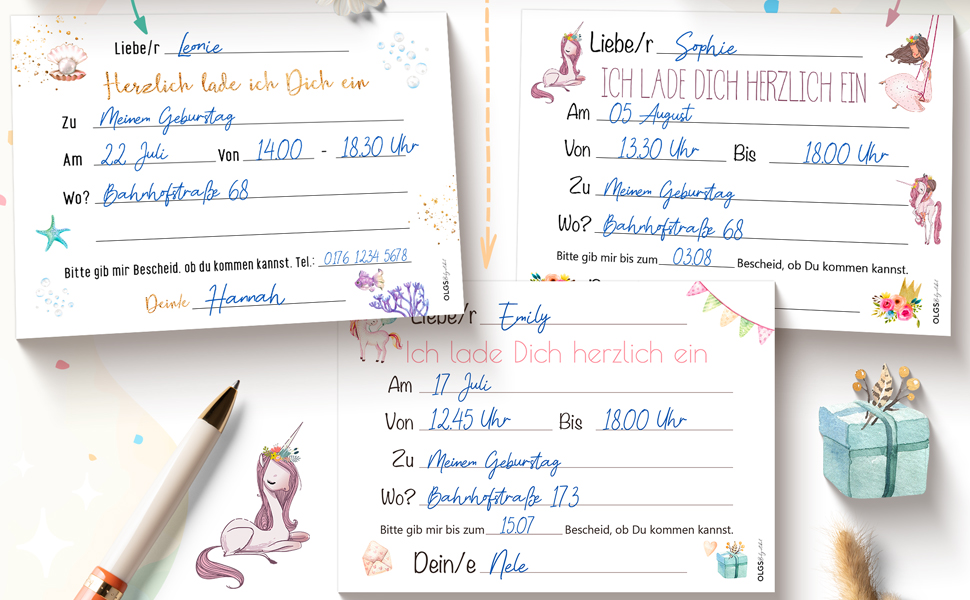 Liebe/r Leonie
Herzlich lade ich Dich ein
Zu Meinem Geburstag
Am 22 Juli Von 14.00 - 18.30 Uhr
Wo? Bahnhofstraße 68
Bitte gib mir Bescheid. ob du kommen kannst. Tel.: 0176 1234 5678
Dein/e Hannah
Liebe/r Sophie
ICH LADE DICH HERZLICH EIN
Am 05 August
Von 13.30 Uhr Bis 18.00 Uhr
Zu Meinem Geburstag
Wo? Bahnhofstraße 68
Bitte gib mir bis zum 03.08 Bescheid, ob Du kommen kannst.
OLGS
Liebe/r Emily
Ich lade Dich herzlich ein
Am 17 Juli
Von 12.45 Uhr Bis 18.00 Uhr
Zu Meinem Geburstag
Wo? Bahnhofstraße 17.3
Bitte gib mir bis zum 15.07 Bescheid, ob Du kommen kannst.
Dein/e Nele
OLGS
OLGS